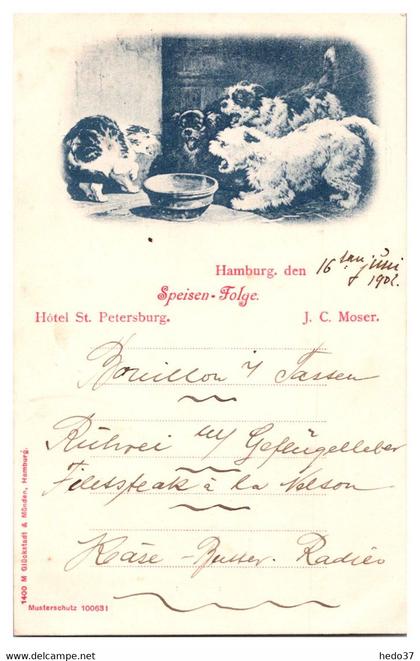 Hamburg, den 16 juni 1902.
Speisen-Folge.
Hôtel St. Petersburg. J. C. Moser.
Bouillon i/ Tassen
Rührei m/ Geflügelleber
Filetsteak à la Nelson
Käse - Butter. Radies
1400 M Glückstadt & Münden, Hamburg.
Musterschutz 100631
www.delcampe.net
echo37